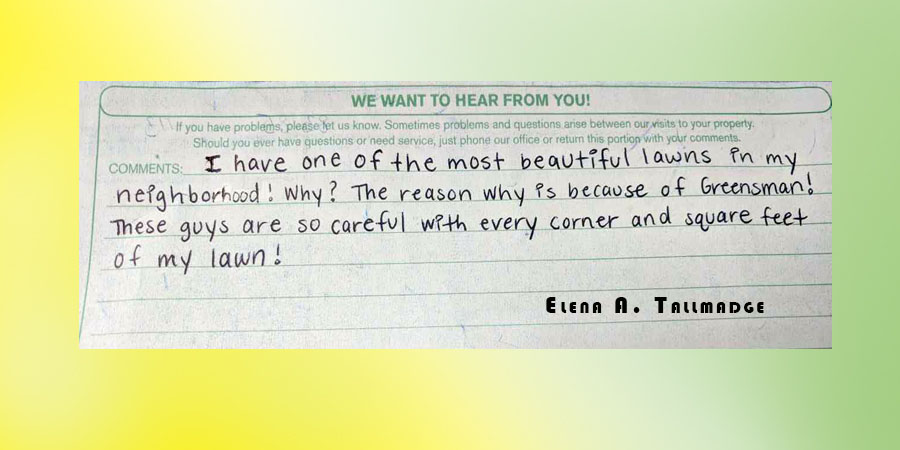 WE WANT TO HEAR FROM YOU!
If you have problems, please let us know. Sometimes problems and questions arise between our visits to your property.
Should you ever have questions or need service, just phone our office or return this portion with your comments.
COMMENTS: I have one of the most beautiful lawns in my
neighborhood! Why? The reason why is because of Greensman!
These guys are so careful with every corner and square feet
of my lawn!
Elena A. Tallmadge